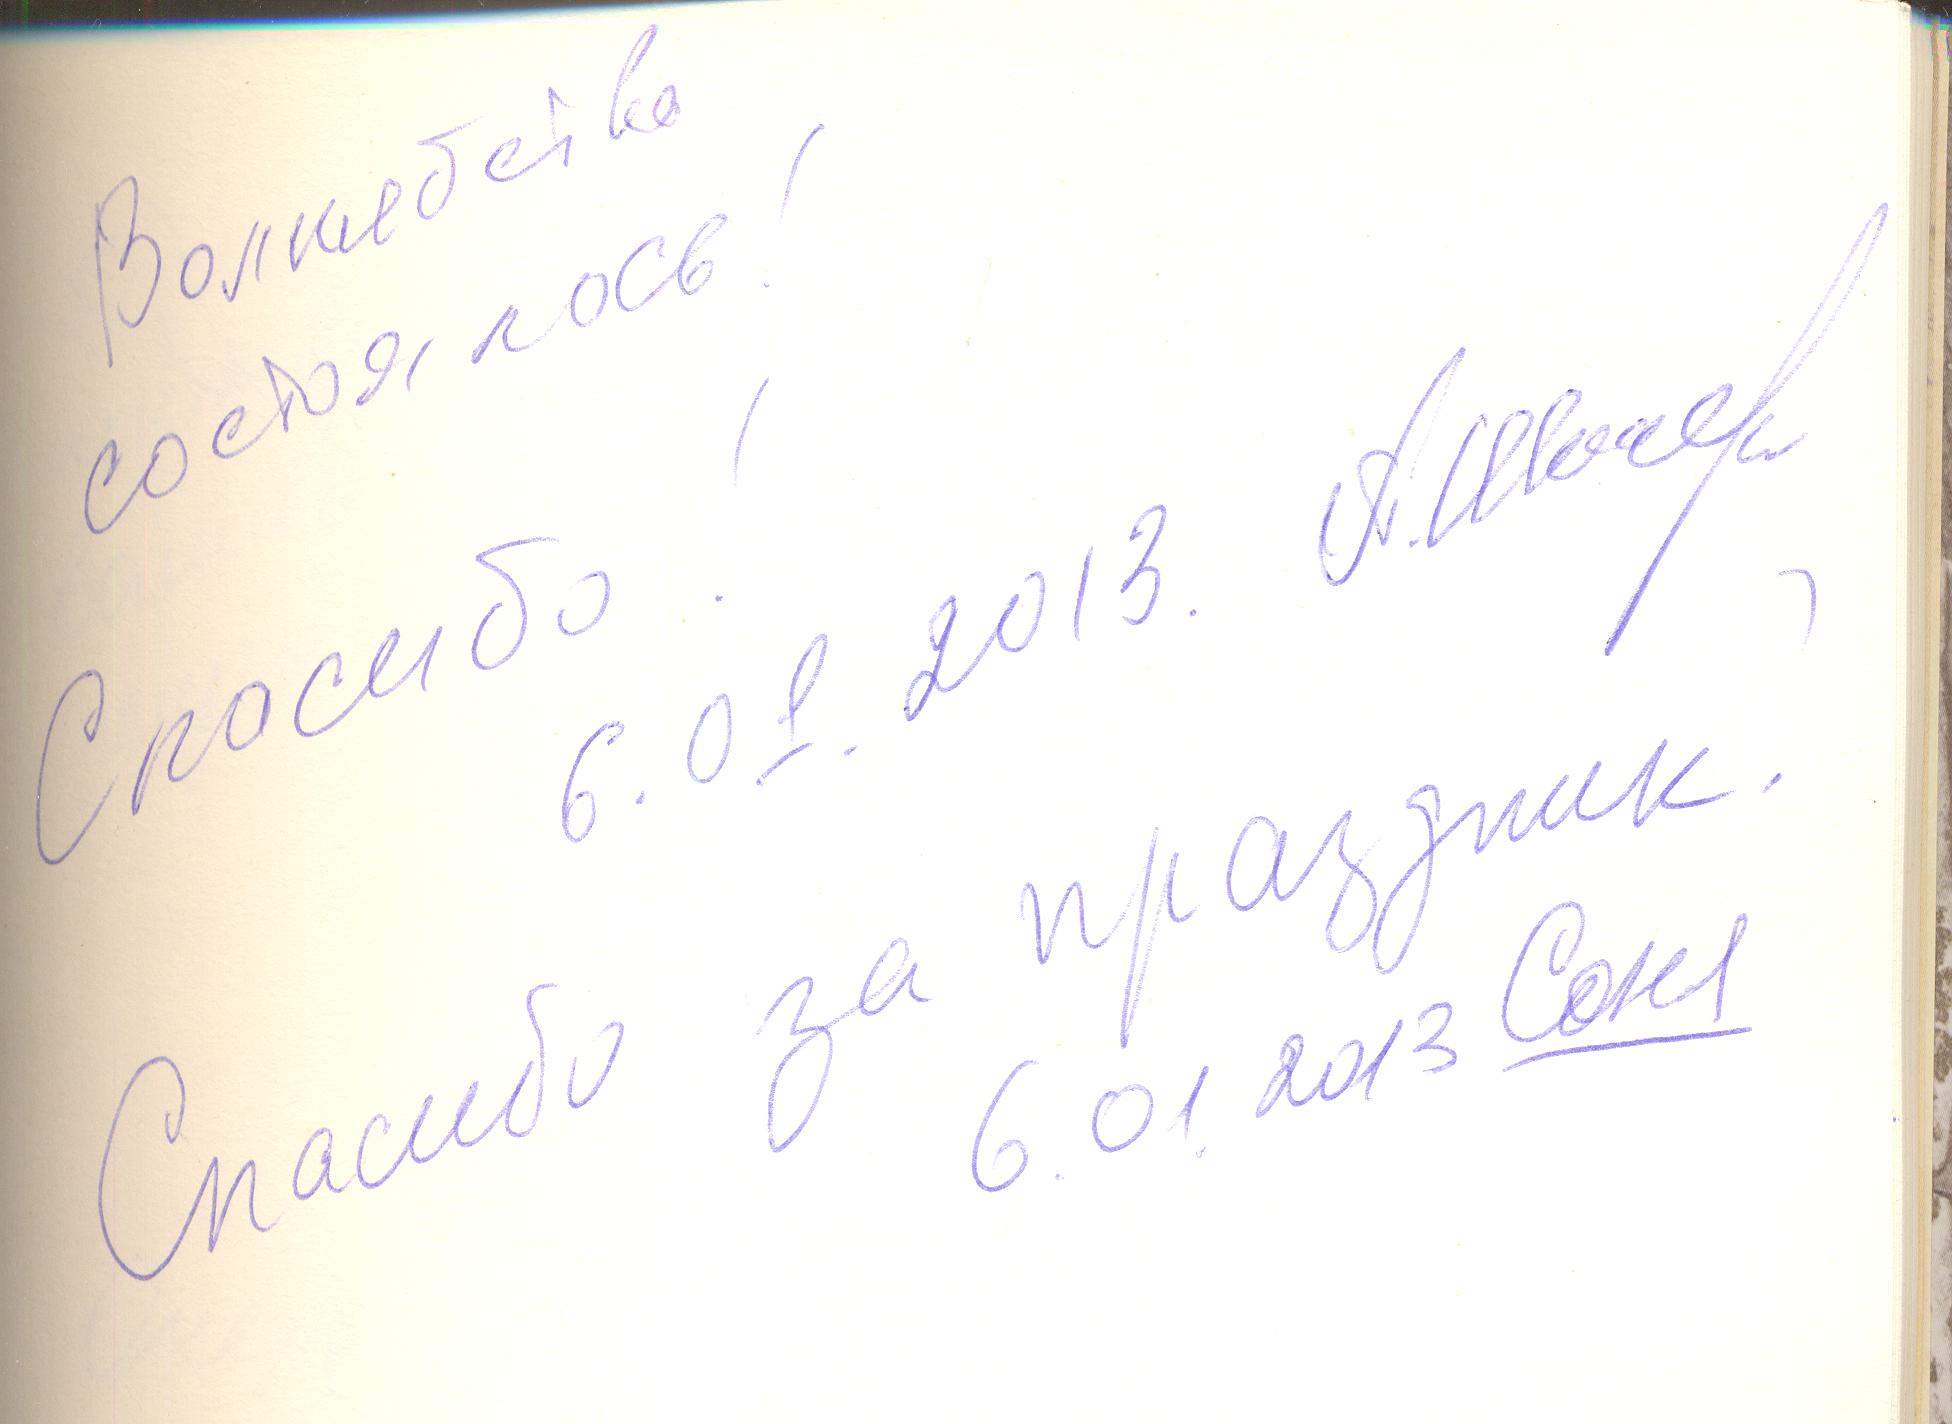 Волшебство
состоялось!
Спасибо!
6.01.2013. А.
Спасибо за праздник.
6.01.2013 Соня